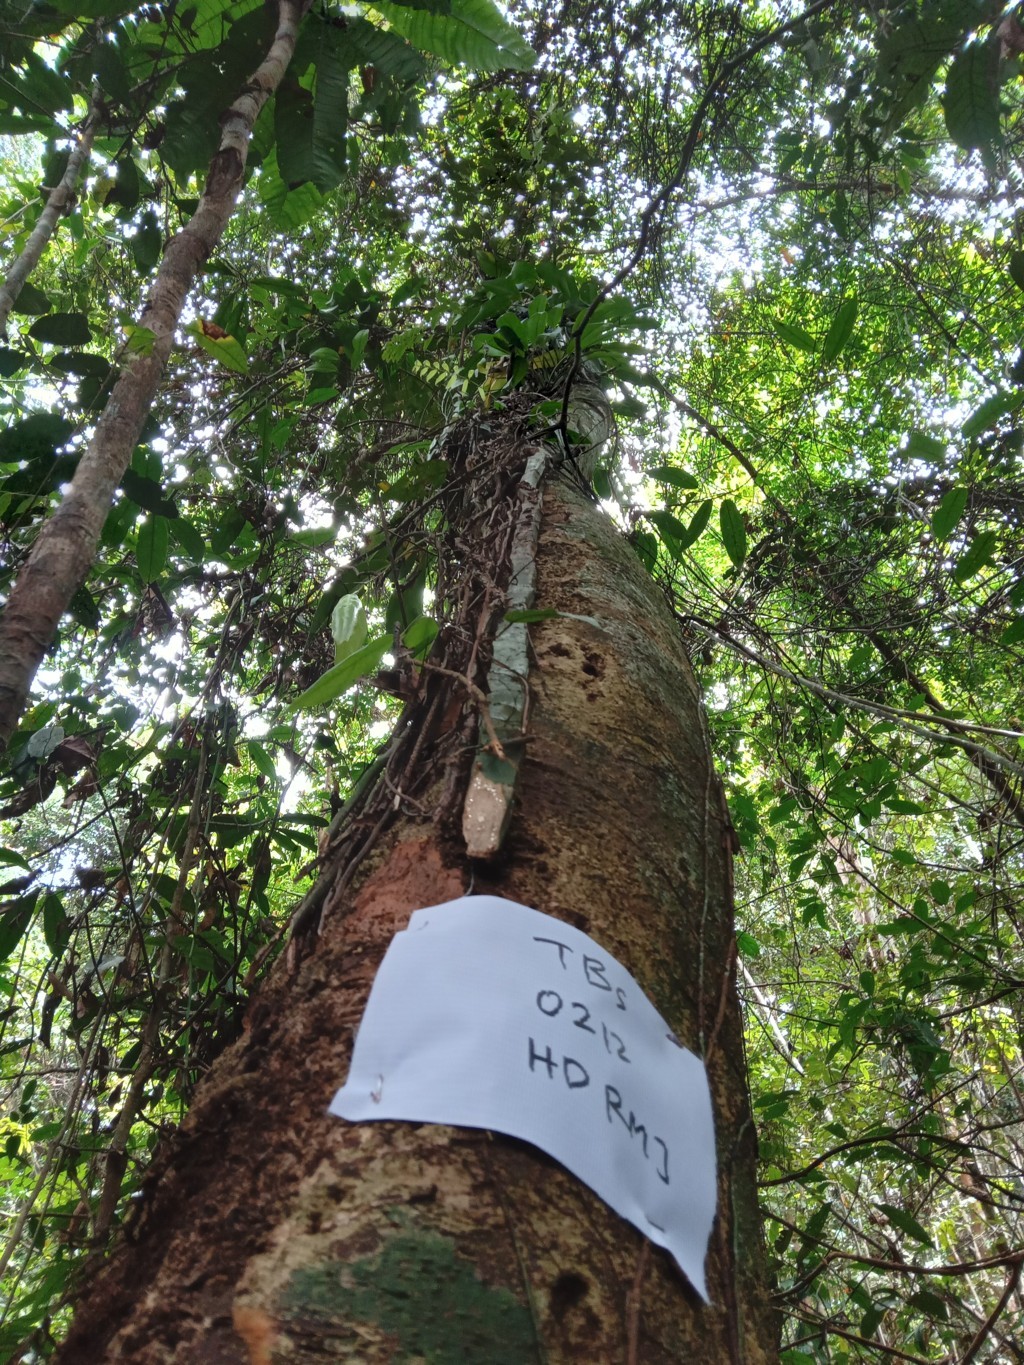 TBs
0212
HD RMJ